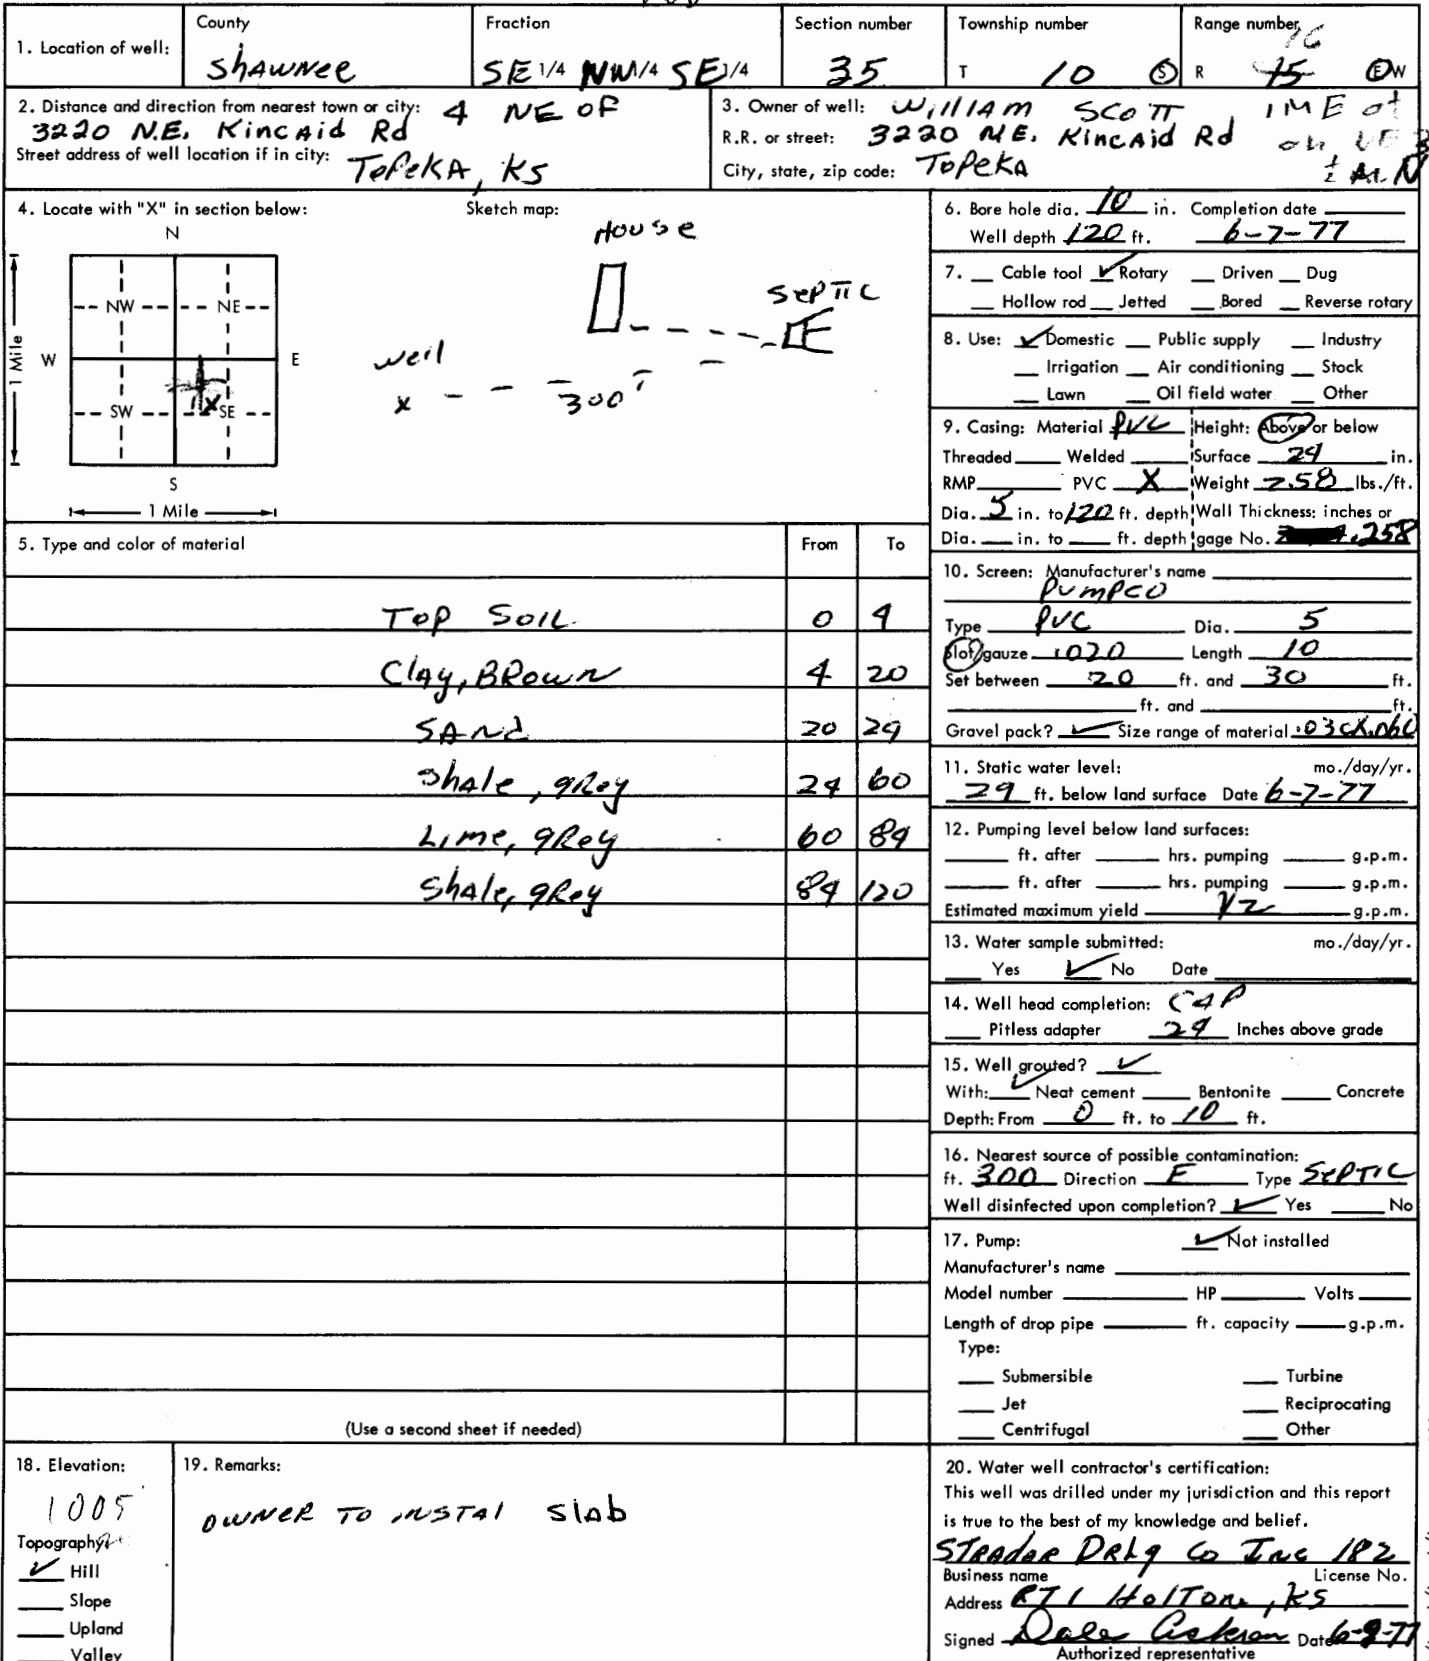 County Fraction Section number Township number Range number
1. Location of well: Shawnee SE 1/4 NW 1/4 SE 1/4 35 T 10 S R 15 E W
16
2. Distance and direction from nearest town or city: 4 NE OF
3220 N.E. Kincaid Rd
Street address of well location if in city: Topeka, KS
3. Owner of well: William Scott
R.R. or street: 3220 N.E. Kincaid Rd
City, state, zip code: Topeka
4. Locate with "X" in section below: Sketch map:
N
NW NE
W E
SW X SE
S
1 Mile
1 Mile
House
Septic
well
x 300'
5. Type and color of material From To
Top Soil 0 4
Clay, Brown 4 20
Sand 20 24
Shale, grey 24 60
Lime, grey 60 84
Shale, grey 84 120
(Use a second sheet if needed)
6. Bore hole dia. 10 in. Completion date
Well depth 120 ft. 6-7-77
7. Cable tool ✓ Rotary Driven Dug
Hollow rod Jetted Bored Reverse rotary
8. Use: ✓ Domestic Public supply Industry
Irrigation Air conditioning Stock
Lawn Oil field water Other
9. Casing: Material PVC Height: Above or below
Threaded Welded Surface 24 in.
RMP PVC X Weight 2.58 lbs./ft.
Dia. 5 in. to 120 ft. depth Wall Thickness: inches or
Dia. in. to ft. depth gage No. .258
10. Screen: Manufacturer's name
Pumpco
Type PVC Dia. 5
Slot/gauze .020 Length 10
Set between 20 ft. and 30 ft.
ft. and ft.
Gravel pack? ✓ Size range of material
11. Static water level: mo./day/yr.
29 ft. below land surface Date 6-7-77
12. Pumping level below land surfaces:
ft. after hrs. pumping g.p.m.
ft. after hrs. pumping g.p.m.
Estimated maximum yield 1/2 g.p.m.
13. Water sample submitted: mo./day/yr.
Yes ✓ No Date
14. Well head completion: CAP
Pitless adapter 24 Inches above grade
15. Well grouted? ✓
With: ✓ Neat cement Bentonite Concrete
Depth: From 0 ft. to 10 ft.
16. Nearest source of possible contamination:
ft. 300 Direction E Type Septic
Well disinfected upon completion? ✓ Yes No
17. Pump: ✓ Not installed
Manufacturer's name
Model number HP Volts
Length of drop pipe ft. capacity g.p.m.
Type:
Submersible Turbine
Jet Reciprocating
Centrifugal Other
18. Elevation:
1005
Topography:
✓ Hill
Slope
Upland
Valley
19. Remarks:
owner to instal slab
20. Water well contractor's certification:
This well was drilled under my jurisdiction and this report
is true to the best of my knowledge and belief.
Strader Drlg Co Inc 182
Business name License No.
Address RT 1 Holton, KS
Signed Dale Date 6-8-77
Authorized representative